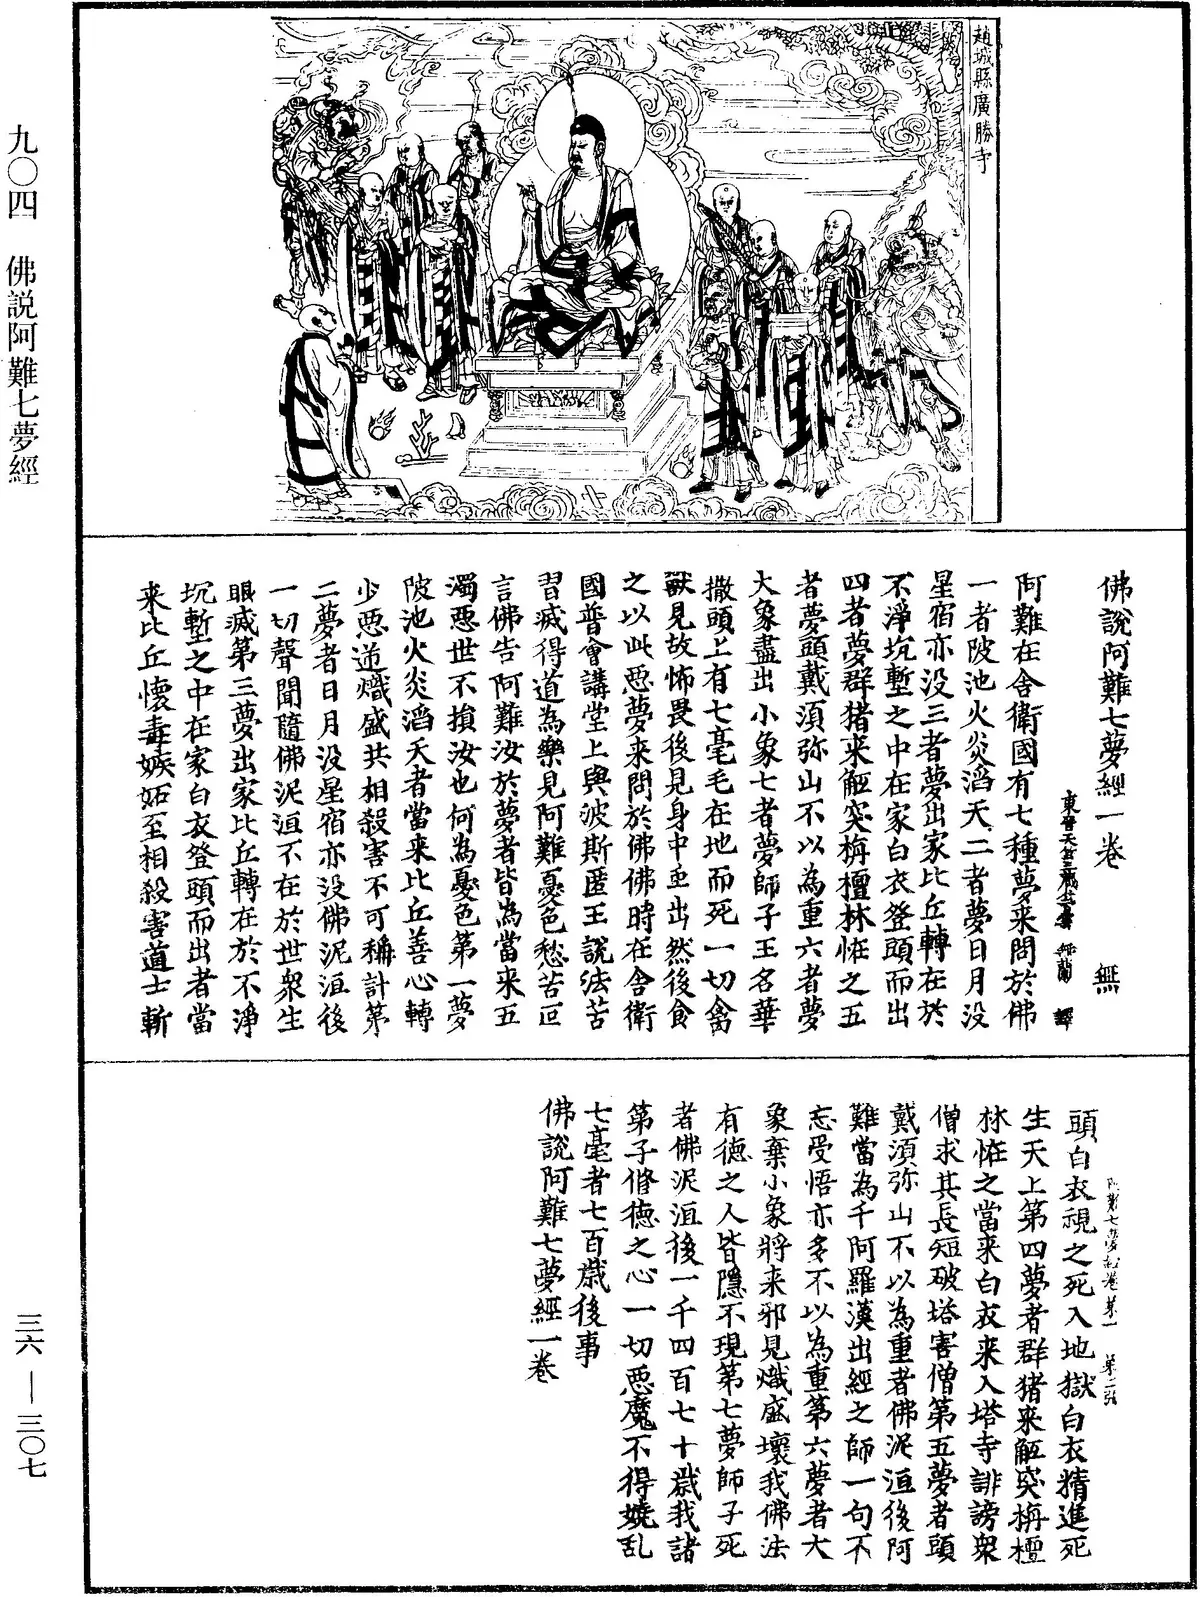 趙城縣廣勝寺
九〇四　佛説阿難七夢經
佛說阿難七夢經一卷　無
東晉天竺三藏 竺曇無蘭 譯
阿難在舍衛國有七種夢来問於佛
一者陂池火炎滔天二者夢日月没
星宿亦没三者夢出家比丘轉在於
不淨坑塹之中在家白衣登頭而出
四者夢群猪来觝突栴檀林恠之五
者夢頭戴須弥山不以為重六者夢
大象盡出小象七者夢師子王名華
撒頭上有七毫毛在地而死一切禽
獸見故怖畏後見身中虫出然後食
之以此惡夢来問於佛佛時在舍衛
國普會講堂上與波斯匿王說法苦
習滅得道為樂見阿難憂色愁苦叵
言佛告阿難汝於夢者皆為當来五
濁惡世不損汝也何為憂色第一夢
陂池火炎滔天者當来比丘善心轉
少惡逆熾盛共相殺害不可稱計第
二夢者日月没星宿亦没佛泥洹後
一切聲聞隨佛泥洹不在於世衆生
眼滅第三夢出家比丘轉在於不淨
坑塹之中在家白衣登頭而出者當
来比丘懷毒嫉妬至相殺害道士斬
阿難七夢經卷第一　第二張
頭白衣視之死入地獄白衣精進死
生天上第四夢者群猪来觝突栴檀
林恠之當来白衣来入塔寺誹謗衆
僧求其長短破塔害僧第五夢者頭
戴須弥山不以為重者佛泥洹後阿
難當為千阿羅漢出經之師一句不
忘受悟亦多不以為重第六夢者大
象棄小象將来邪見熾盛壞我佛法
有德之人皆隱不現第七夢師子死
者佛泥洹後一千四百七十歲我諸
第子脩德之心一切惡魔不得嬈乱
七毫者七百歲後事
佛說阿難七夢經一卷
三六 — 三〇七